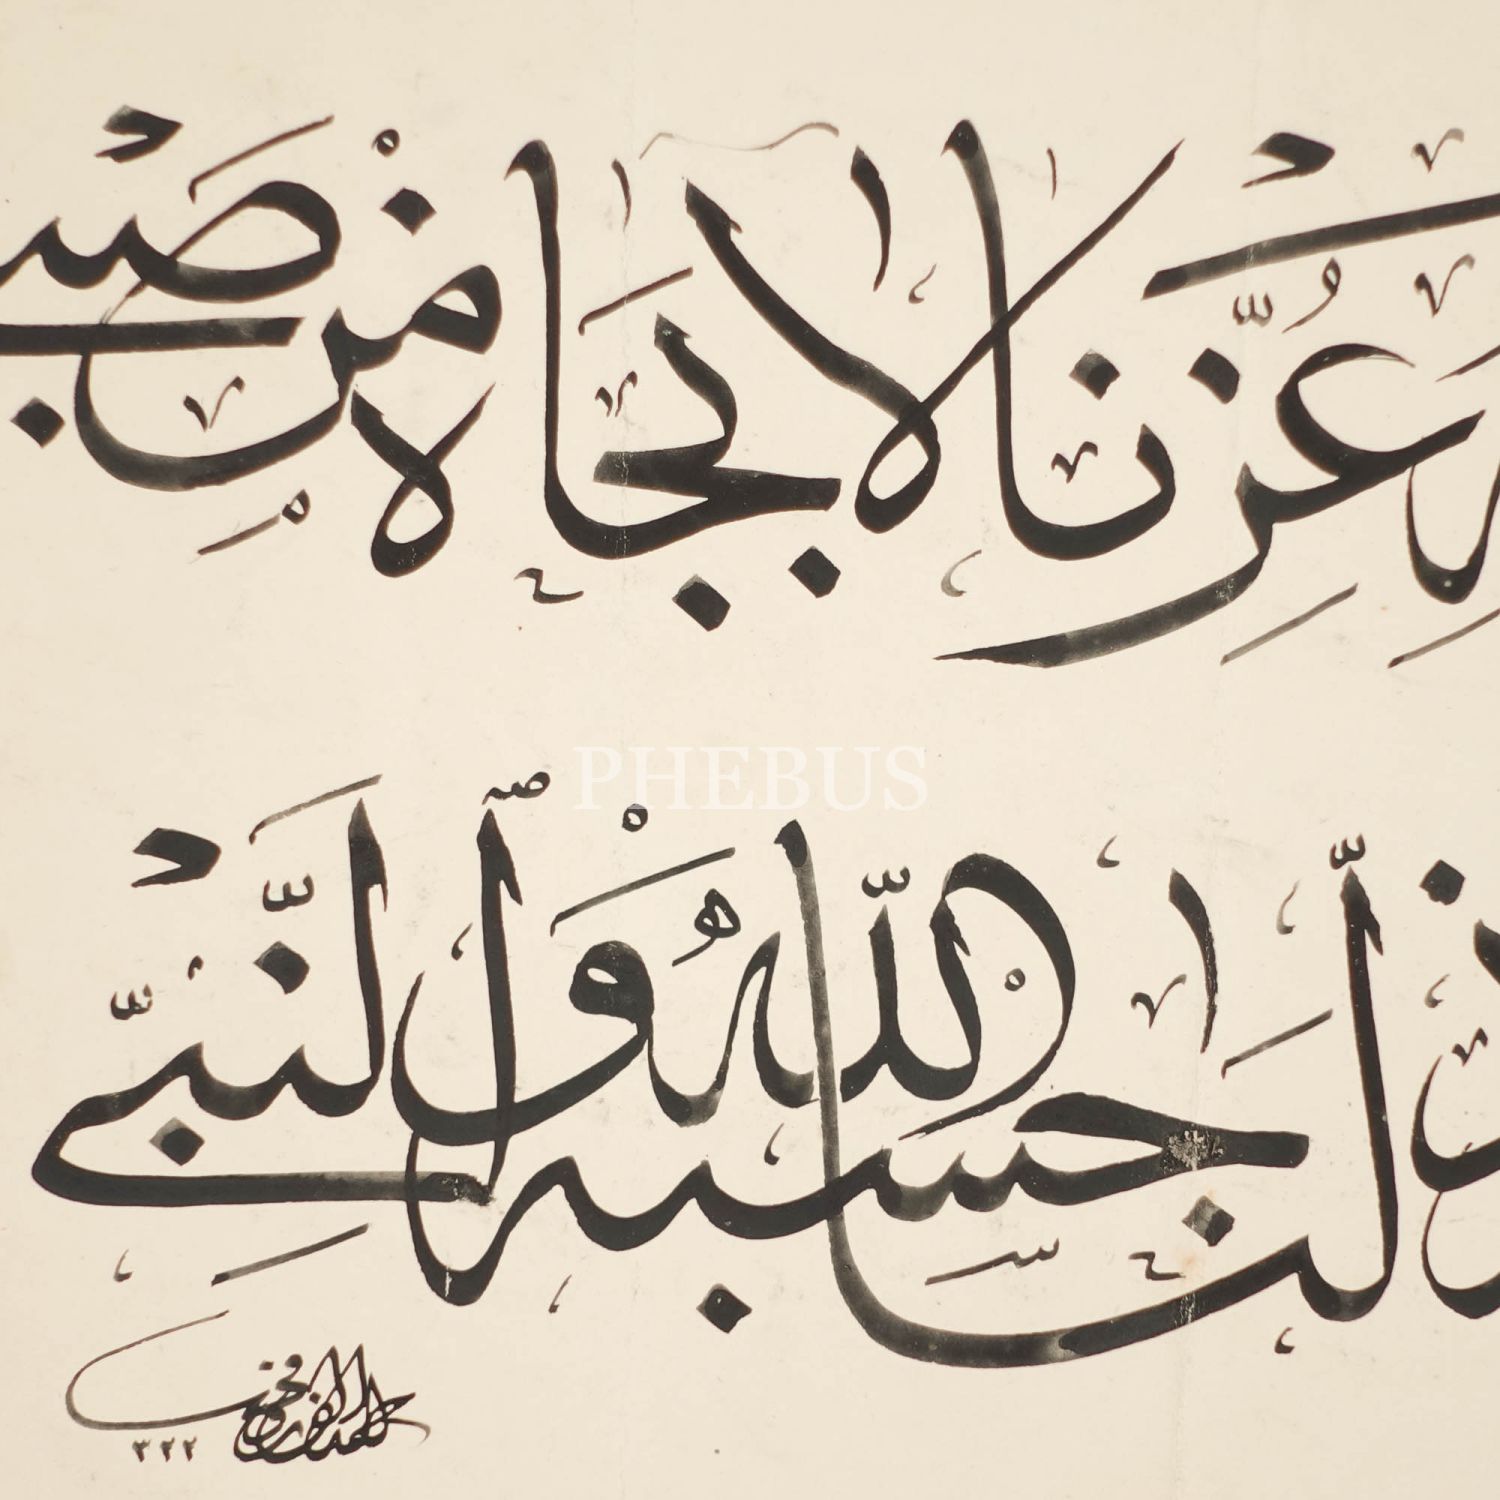 عزنا لا بجاه منصب
PHEBUS
ذلنا حسبه الله والنبي
٣٢٢